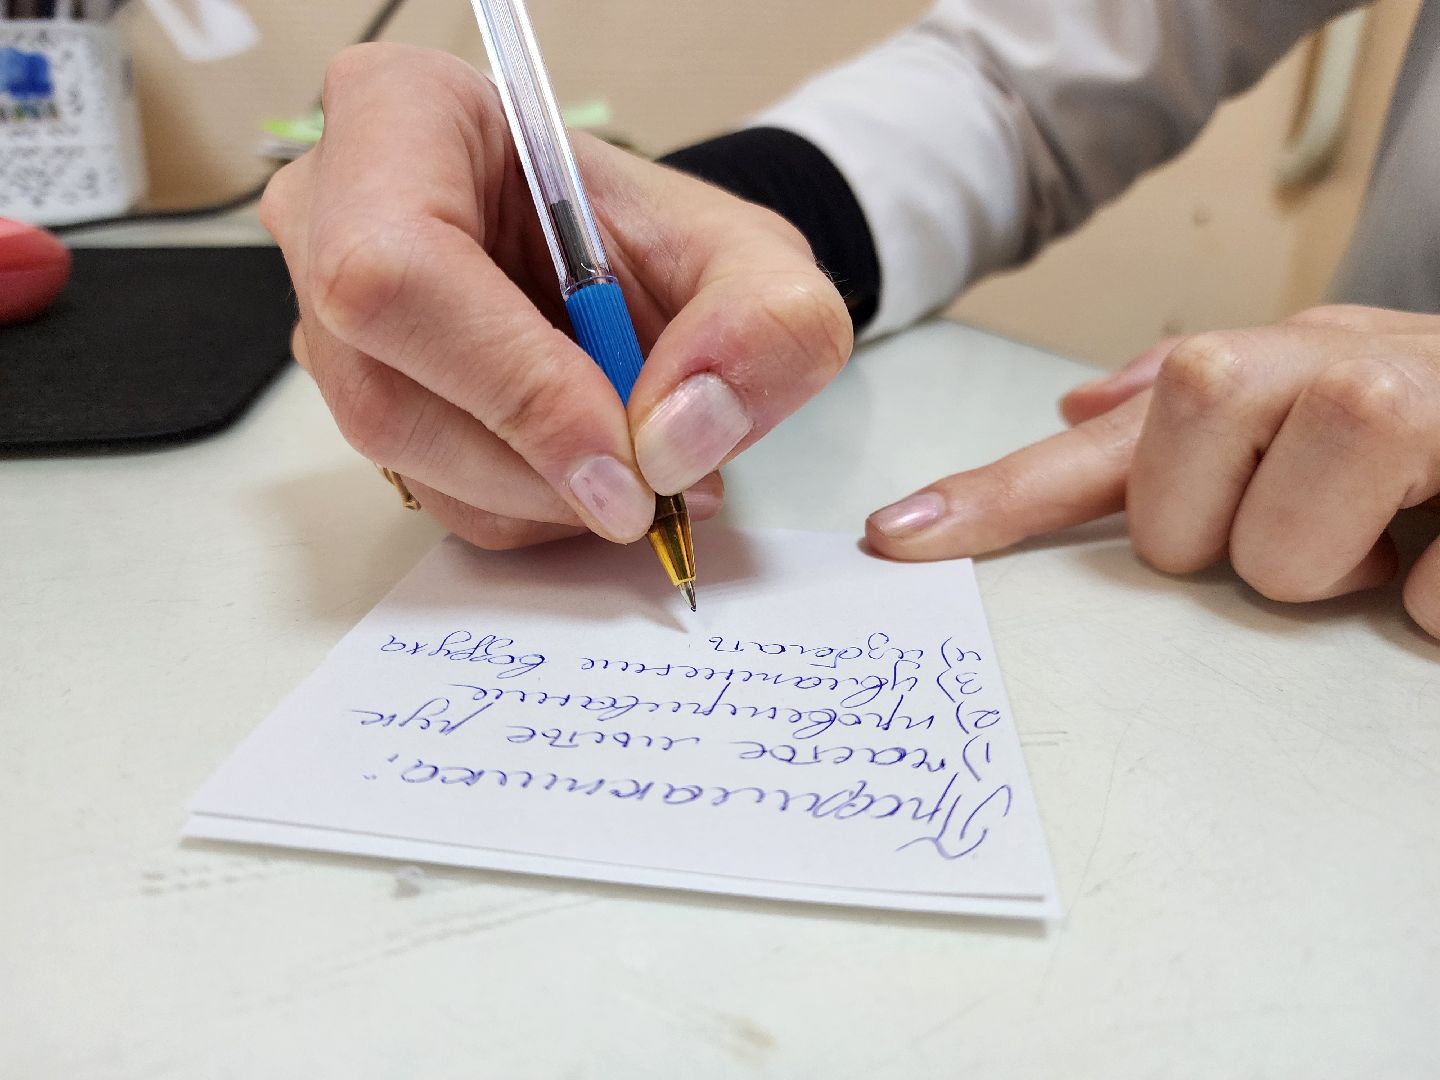 Профилактика:
1) частое мытьё рук
2) проветривание
3) увлажнение воздуха
4) избегать